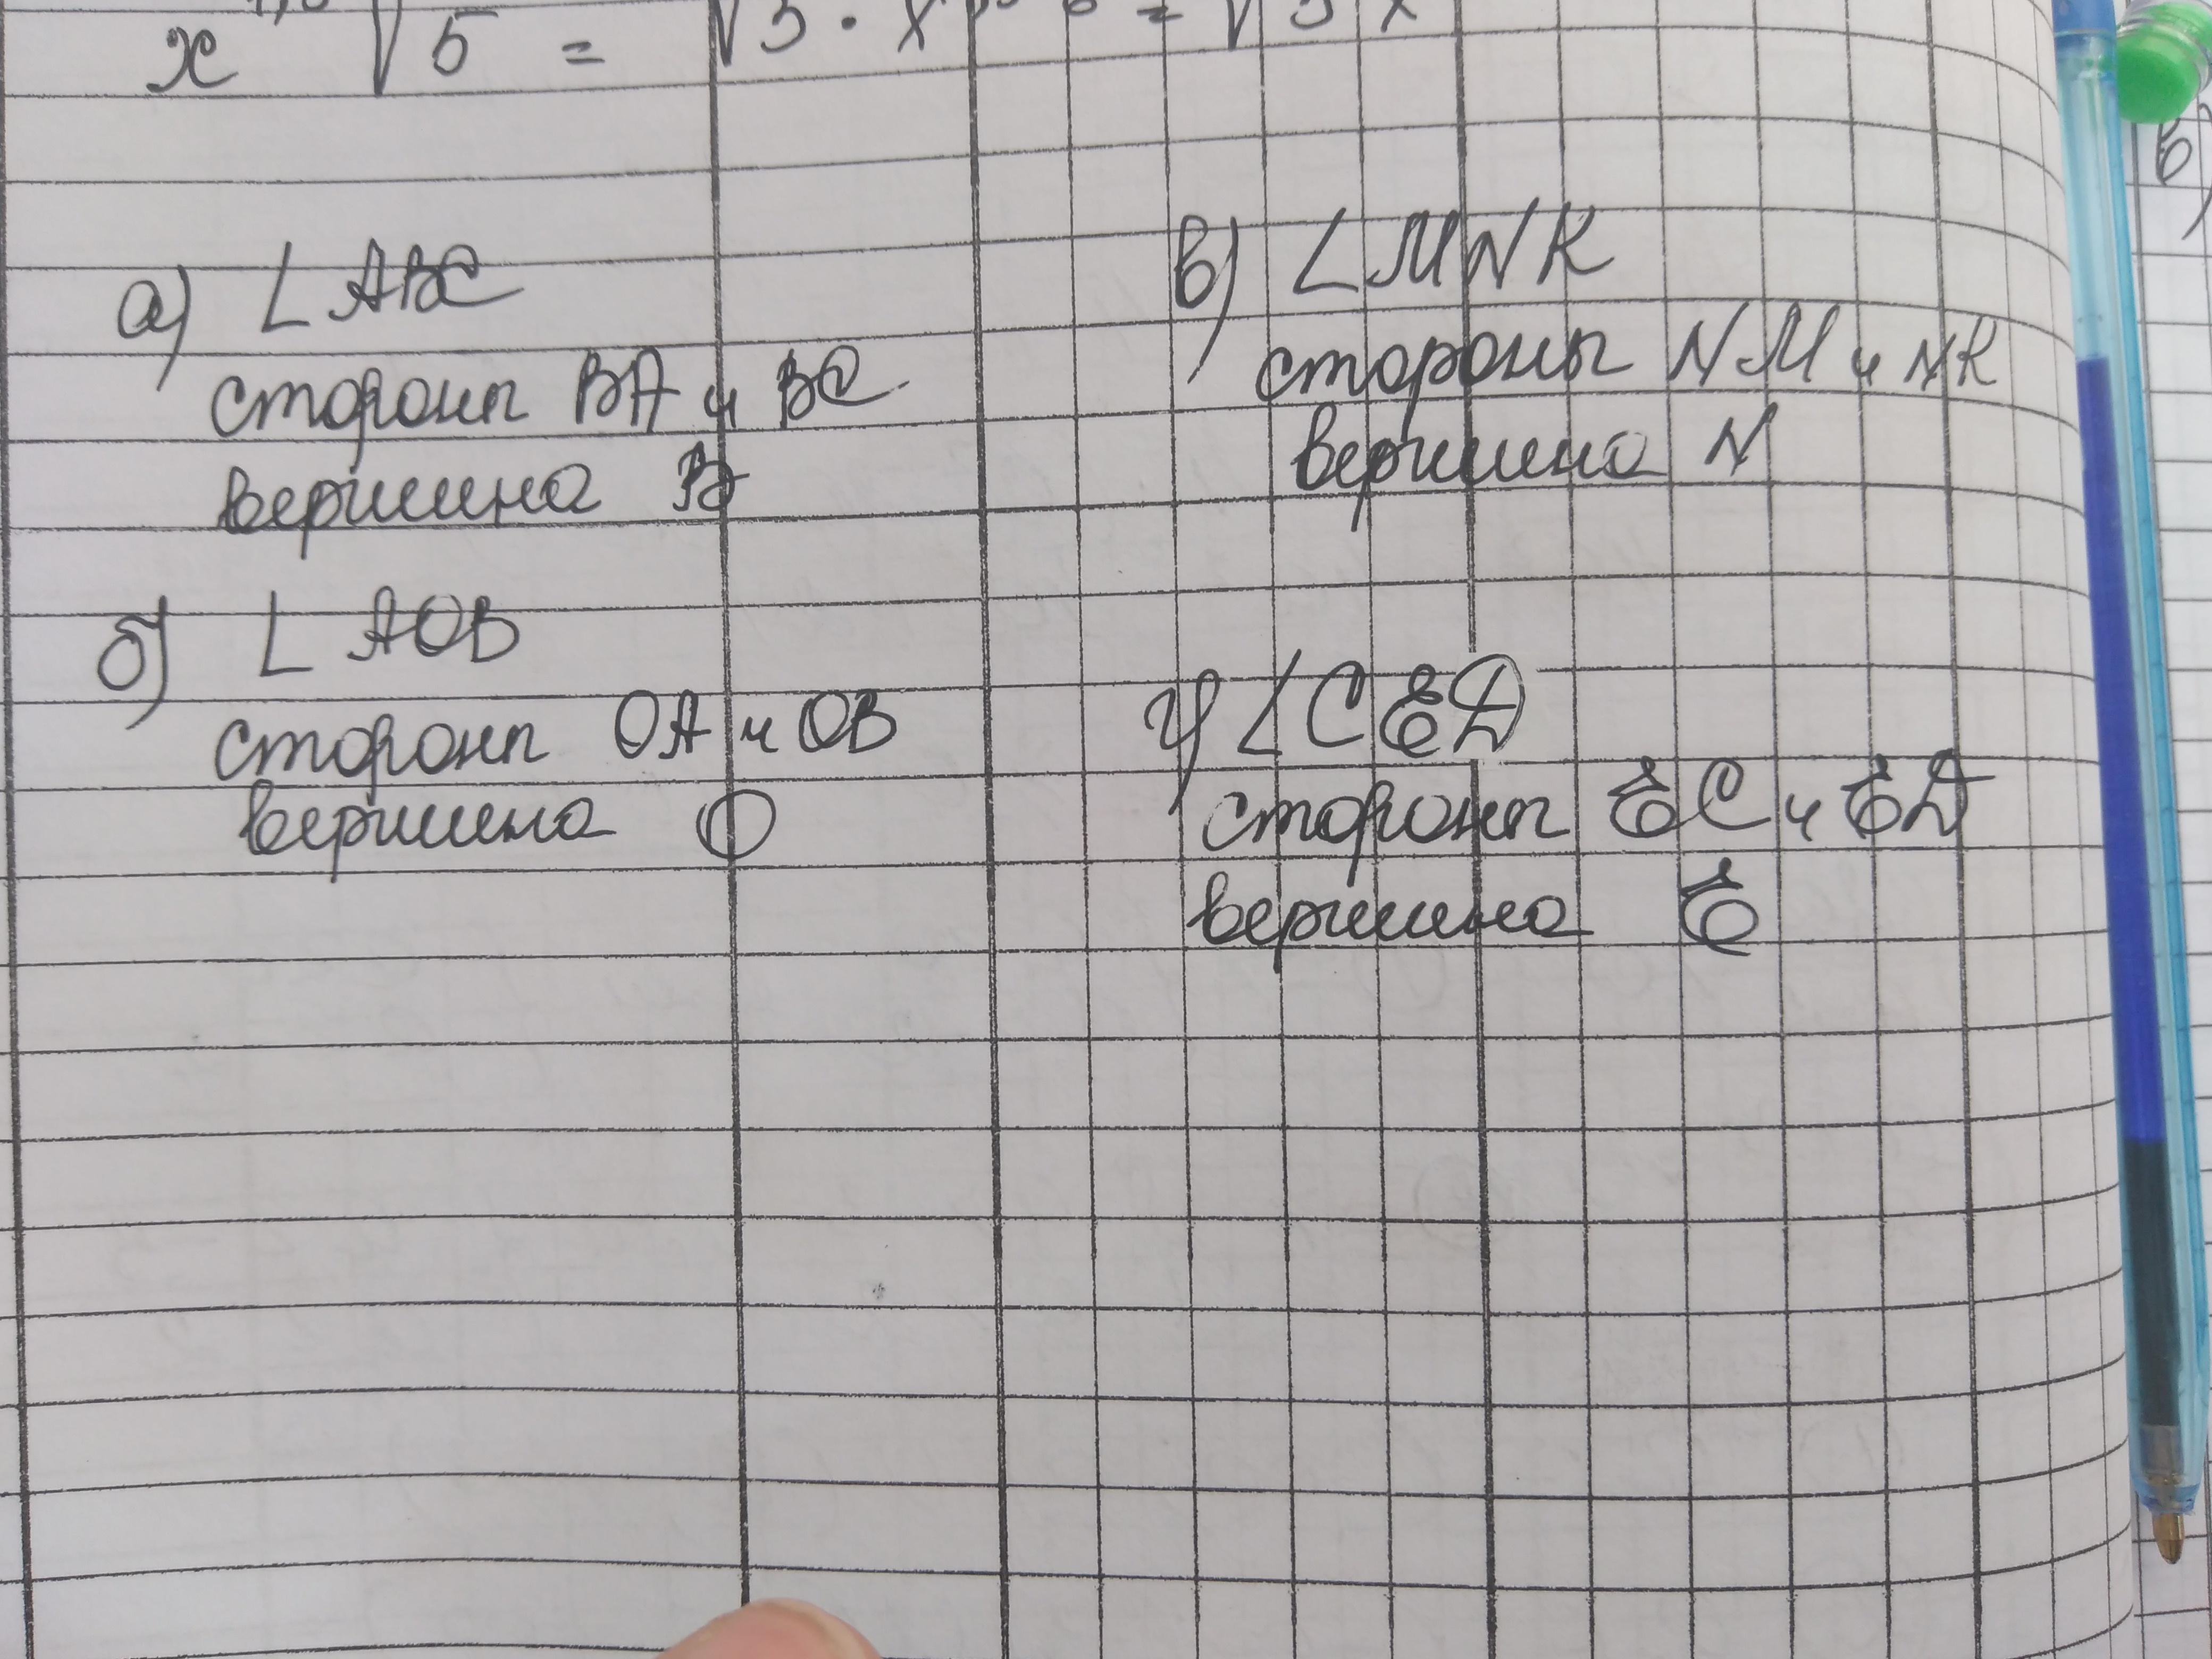 x √5 =
а) ∠ ABC
стороны BA и BC
вершина B
б) ∠ AOB
стороны OA и OB
вершина O
в) ∠ MNK
стороны NM и NK
вершина N
г) ∠ CED
стороны EC и ED
вершина E
в)